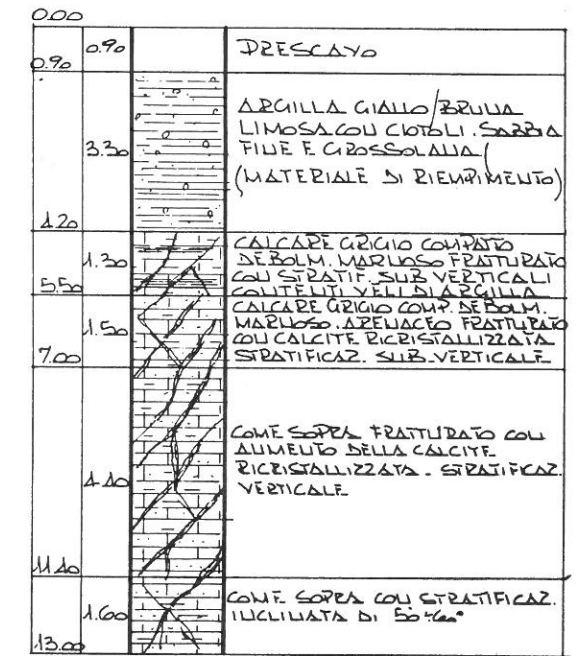 0.00
0.90
0.90
PRESCAVO
3.30
ARGILLA GIALLO/BRUNA
LIMOSA CON CIOTOLI. SABBIA
FINE E GROSSOLANA
(MATERIALE DI RIEMPIMENTO)
4.20
1.30
CALCARE GRIGIO COMPATTO
DEBOLM. MARNOSO FRATTURATO
CON STRATIF. SUB VERTICALI
CONTENTI VELI DI ARGILLA
5.50
1.50
CALCARE GRIGIO COMP. DEBOLM.
MARNOSO. ARENACEO FRATTURATO
CON CALCITE RICRISTALLIZZATA
STRATIFICAZ. SUB-VERTICALE
7.00
4.40
COME SOPRA FRATTURATO CON
AUMENTO DELLA CALCITE
RICRISTALLIZZATA - STRATIFICAZ.
VERTICALE
11.40
1.60
COME SOPRA CON STRATIFICAZ.
INCLINATA DI 50÷60°
13.00